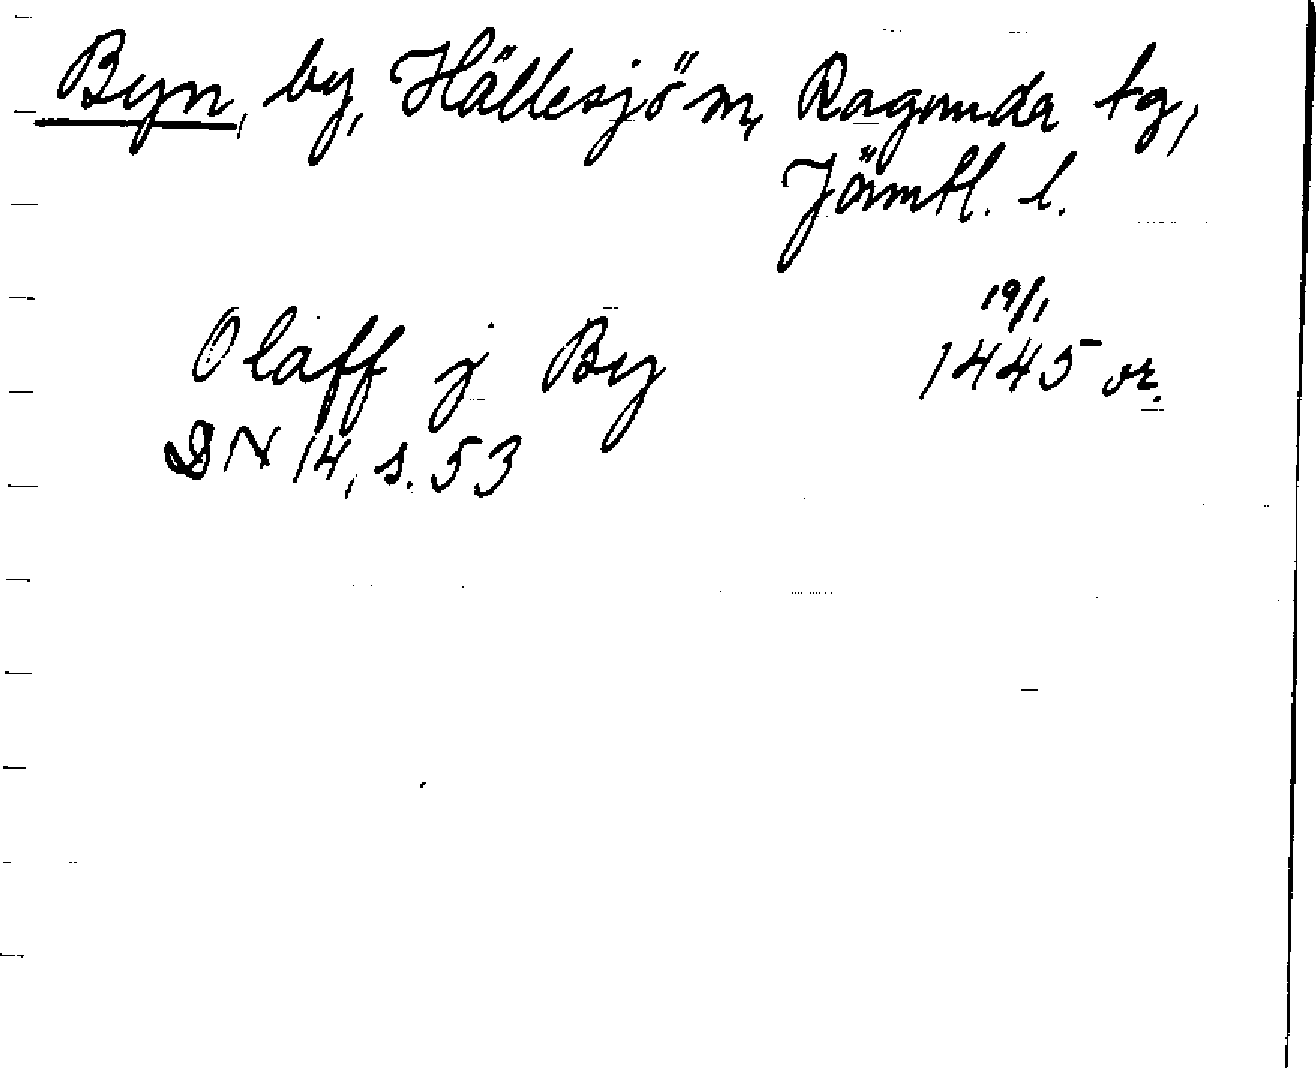 Byn, by, Hällesjö sn, Ragunda tg,
Jämtl. l.
19/1
Olaff j By 1445 or.
DN 14, s. 53